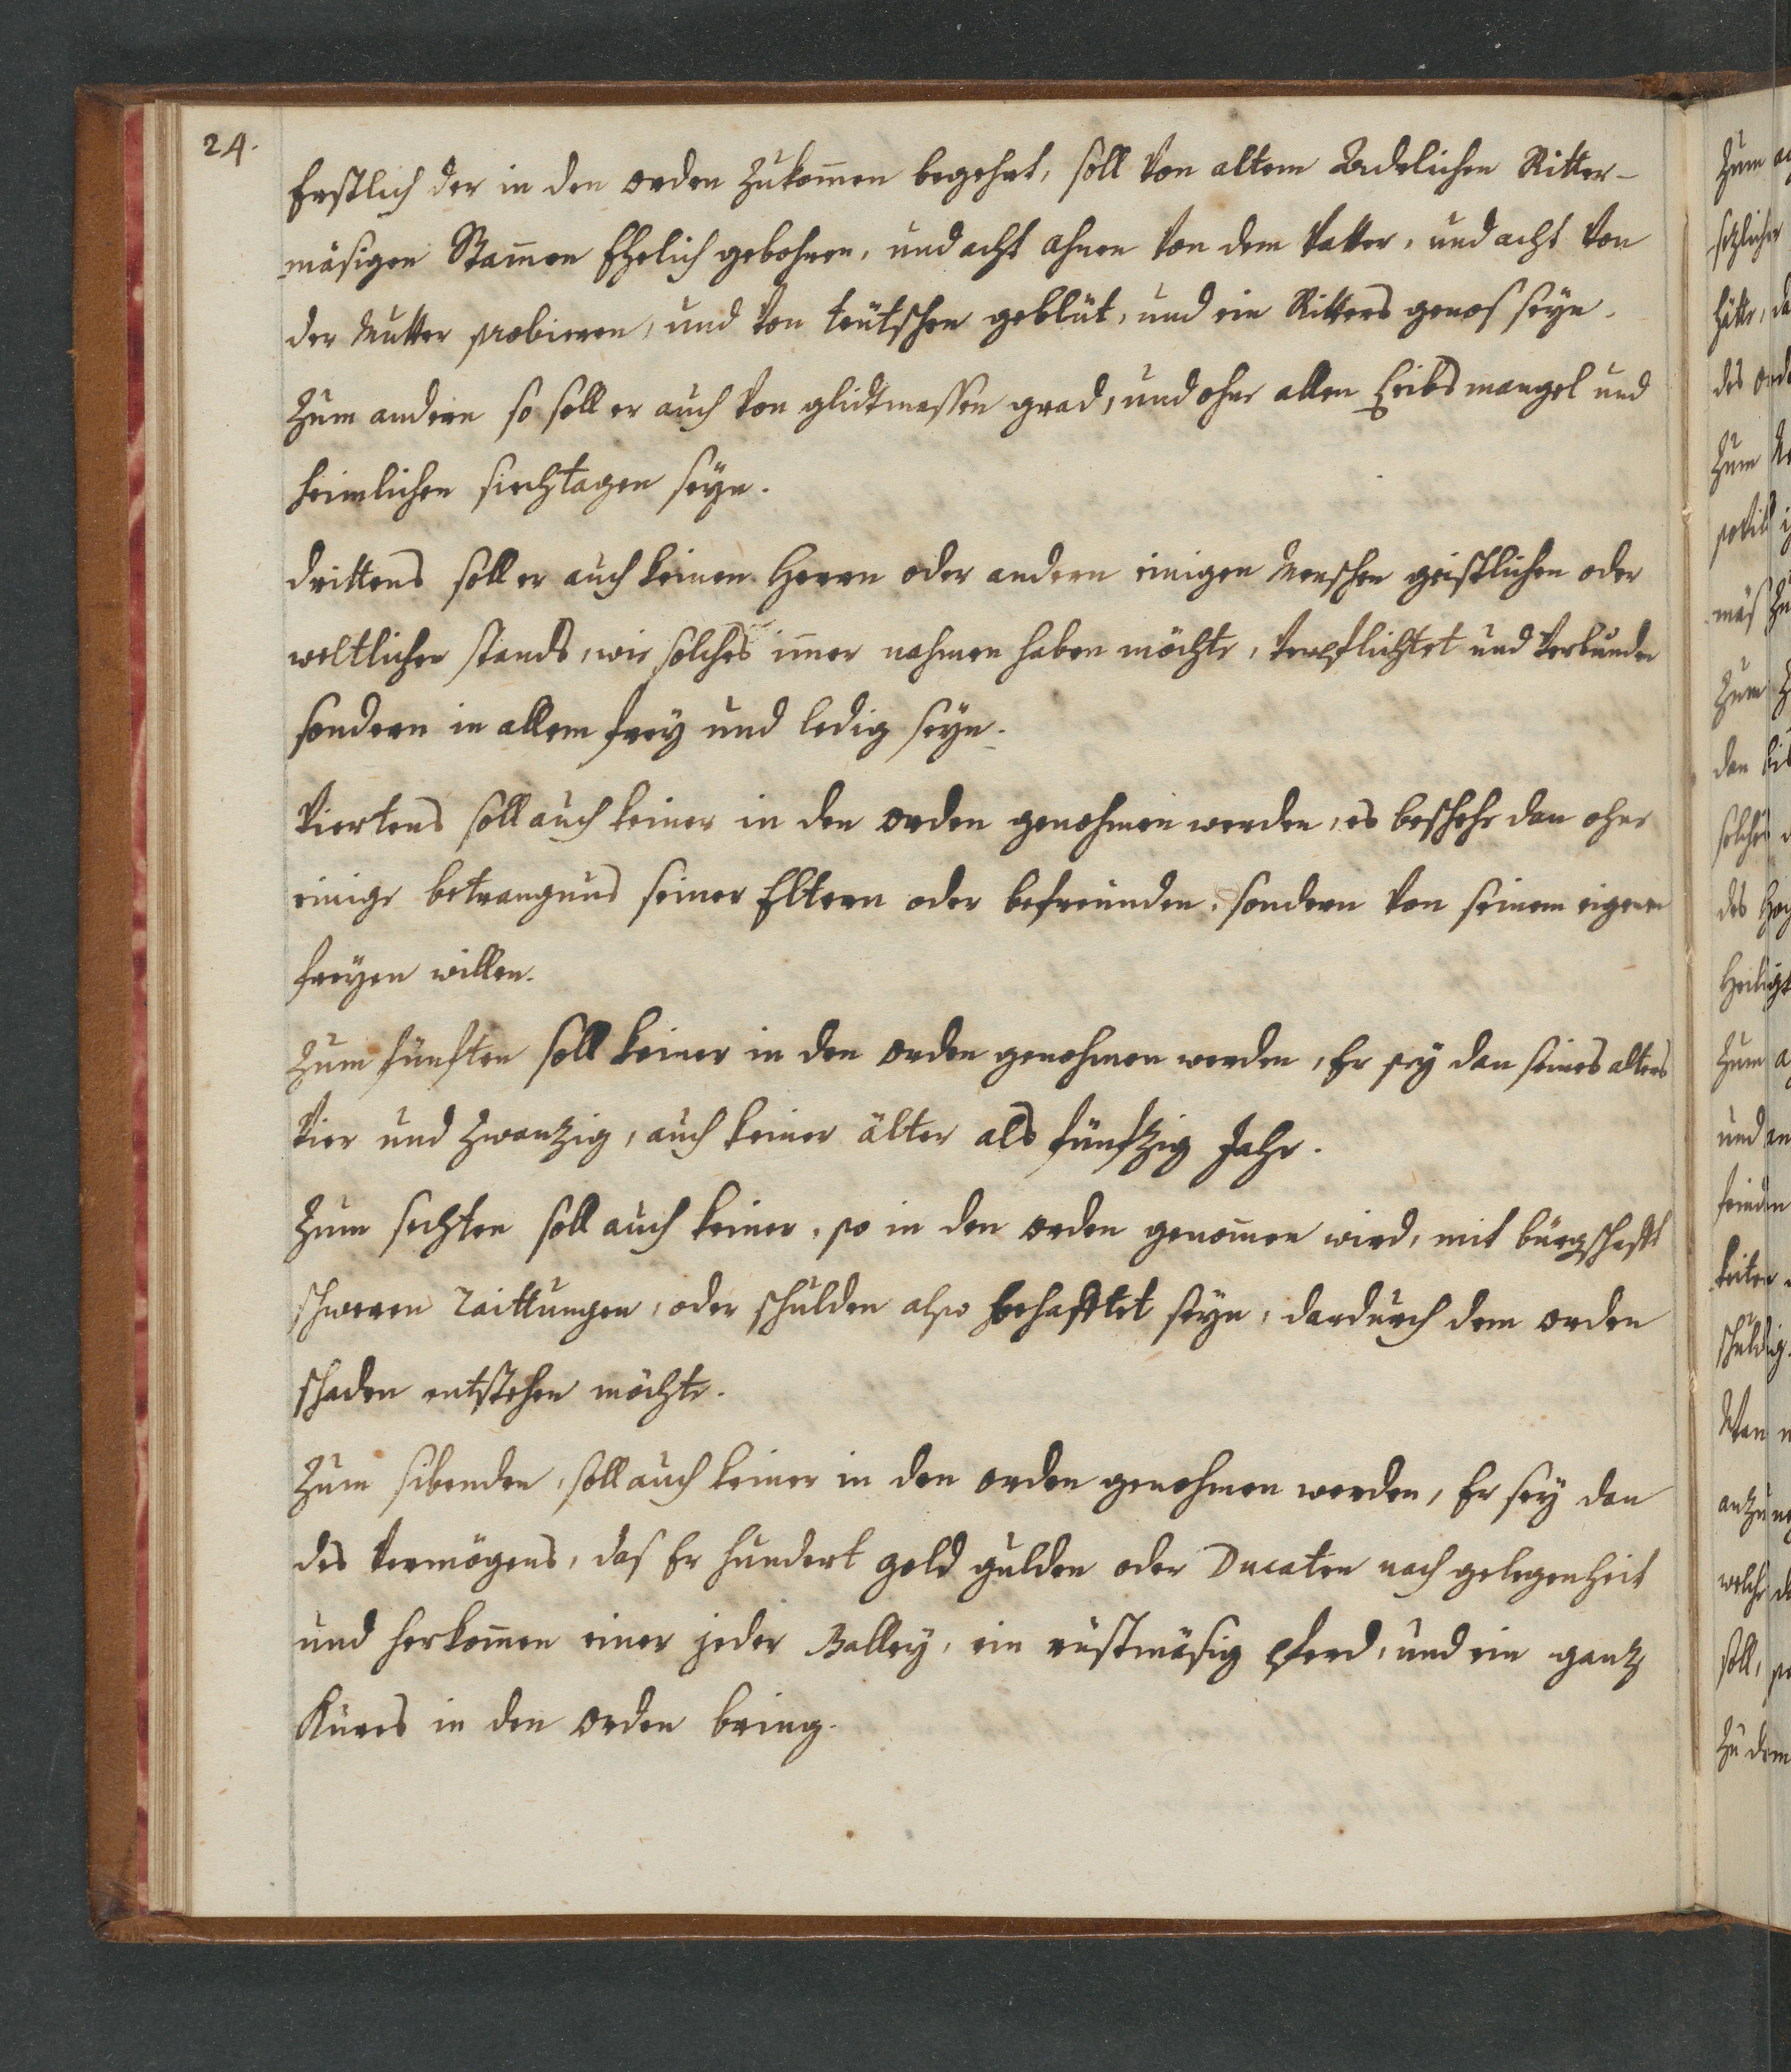 24.
Erstlich der in den orden Zukom̅en begehrt, soll von altem Adelichen Ritter-
mäsigen Stam̅en Ehelich gebohren, und acht ahnen von dem vatter, und acht von
der Mutter probieren, und von teütschen geblüt, und ein Ritters genos seyn.
Zum andern so soll er auch von glidtmassen grad, und ohne allen Leibs mangel und
heimlichen siechtagen seyn.
drittens soll er auch keinen Herrn oder andern einigen Menschen geistlichen oder
weltlichen stands, wie solches im̅er nahmen haben möchte, verpflichtet und verbunden
sondern in allem frey und ledig seyn.
viertens soll auch keiner in den orden genohmen werden, es beschehe dan ohne
einige betrangnus seiner Eltern oder befreunden, sondern von seinem eigenen
freyen willen.
Zum fünften soll keiner in den orden genohmen werden, Er sey dan seines alters
vier und Zwantzig, auch keiner älter als fünfzig Jahr.
Zum sechten soll auch keiner, so in den orden genom̅en wird, mit bürgschafft
schweren Raittungen, oder schulden also behafftet seyn, dardurch dem orden
schaden entstehen möchte.
Zum sibenden, soll auch keiner in den orden genohmen werden, Er sey dan
des vermögens, das Er hundert gold gulden oder Ducaten nach gelegenheit
und herkom̅en einer jeder Balley, ein rüstmäsig pferd, und ein gantz
Küres in den orden bring.